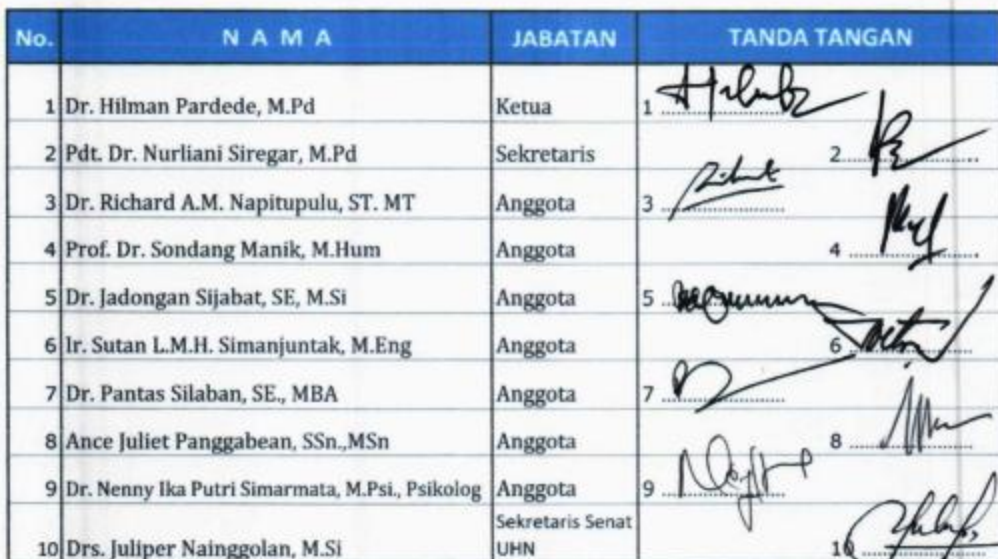 No. N A M A JABATAN TANDA TANGAN
1 Dr. Hilman Pardede, M.Pd Ketua 1
2 Pdt. Dr. Nurliani Siregar, M.Pd Sekretaris 2
3 Dr. Richard A.M. Napitupulu, ST. MT Anggota 3
4 Prof. Dr. Sondang Manik, M.Hum Anggota 4
5 Dr. Jadongan Sijabat, SE, M.Si Anggota 5
6 Ir. Sutan L.M.H. Simanjuntak, M.Eng Anggota 6
7 Dr. Pantas Silaban, SE., MBA Anggota 7
8 Ance Juliet Panggabean, SSn.,MSn Anggota 8
9 Dr. Nenny Ika Putri Simarmata, M.Psi., Psikolog Anggota 9
Sekretaris Senat
10 Drs. Juliper Nainggolan, M.Si UHN 10